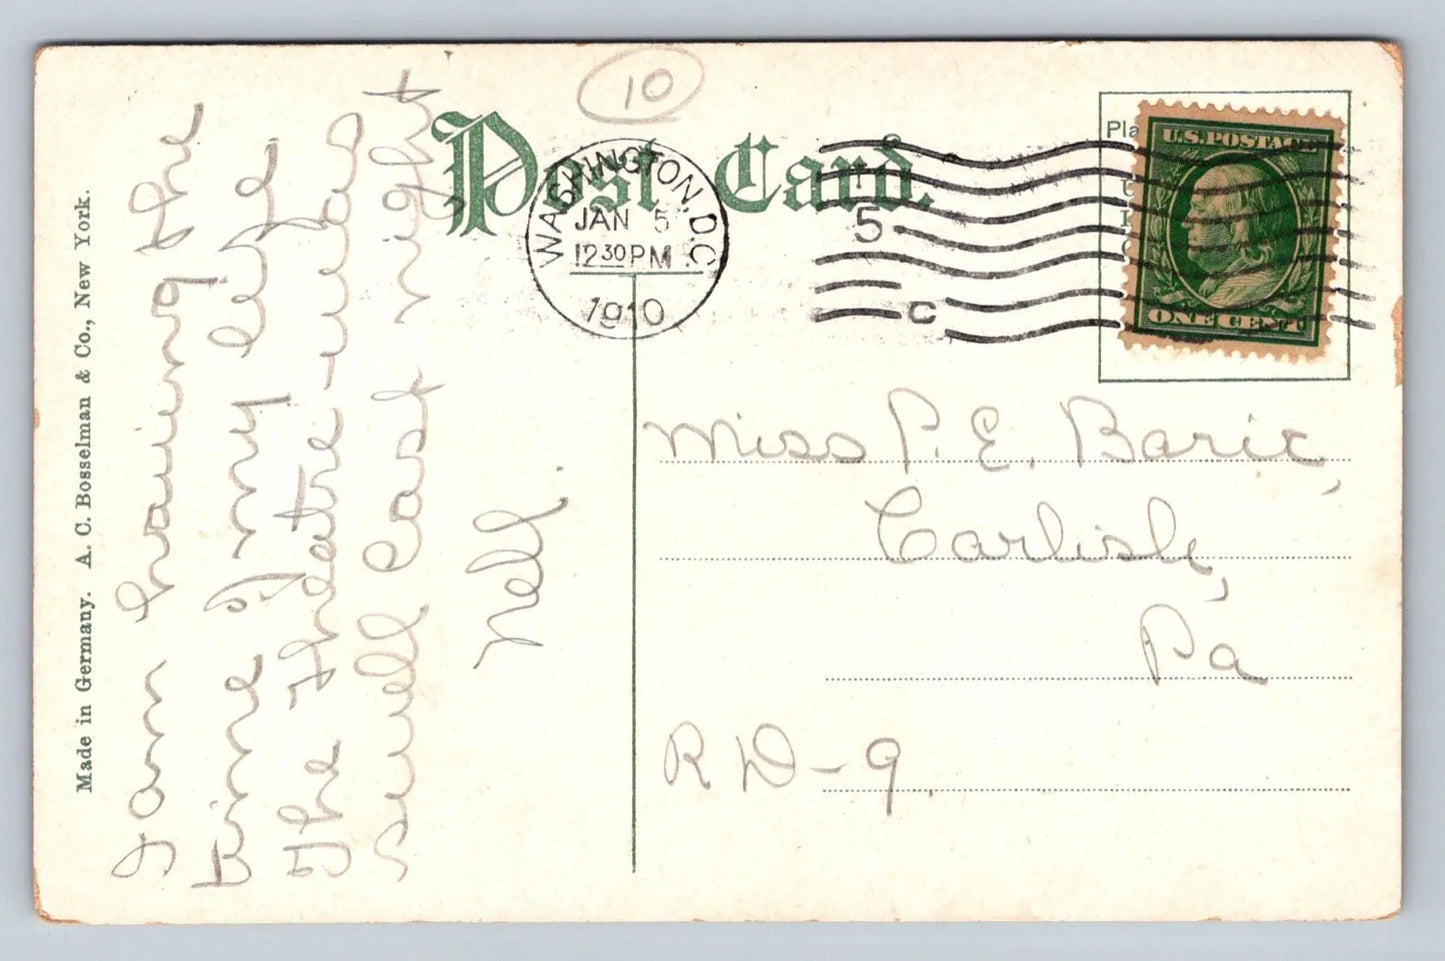 10
Post Card.
WASHINGTON, D.C.
JAN 5
12 30 PM
1910
5
C
Pla
U.S. POSTAGE
ONE CENT
Made in Germany. A. C. Bosselman & Co., New York.
I am having the
time of my life
The theatre was
swell last night
Nell.
Miss P. E. Baric,
Carlisle,
Pa
R D - 9.